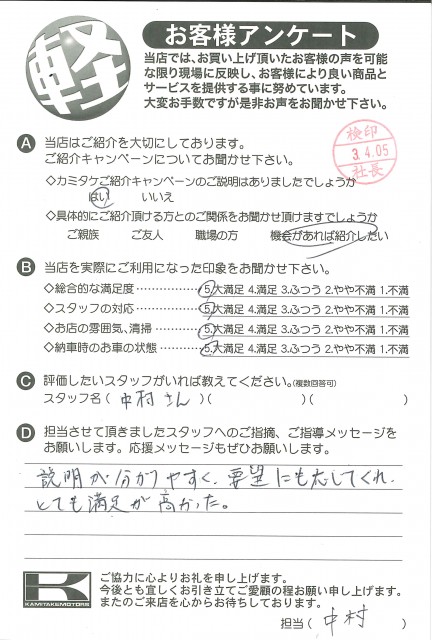 軽
お客様アンケート
当店では、お買い上げ頂いたお客様の声を可能
な限り現場に反映し、お客様により良い商品と
サービスを提供する事に努めています。
大変お手数ですが是非お声をお聞かせ下さい。
検印
3.4.05
社長
A 当店はご紹介を大切にしております。
ご紹介キャンペーンについてお聞かせ下さい。
◇カミタケご紹介キャンペーンのご説明はありましたでしょうか
はい いいえ
◇具体的にご紹介頂ける方とのご関係をお聞かせ頂けますでしょうか
ご親族 ご友人 職場の方 機会があれば紹介したい
B 当店を実際にご利用になった印象をお聞かせ下さい。
◇総合的な満足度………………5.大満足 4.満足 3.ふつう 2.やや不満 1.不満
◇スタッフの対応………………5.大満足 4.満足 3.ふつう 2.やや不満 1.不満
◇お店の雰囲気、清掃…………5.大満足 4.満足 3.ふつう 2.やや不満 1.不満
◇納車時のお車の状態…………5.大満足 4.満足 3.ふつう 2.やや不満 1.不満
C 評価したいスタッフがいれば教えてください。(複数回答可)
スタッフ名(中村さん)( )( )
D 担当させて頂きましたスタッフへのご指摘、ご指導メッセージを
お願いします。応援メッセージもぜひお願いします。
説明が分かりやすく、要望にも応してくれ、
とても満足が高かった。
K
KAMITAKEMOTORS
ご協力に心よりお礼を申し上げます。
今後とも宜しくお引き立てご愛顧の程お願い申し上げます。
またのご来店を心からお待ちしております。
担当(中村)